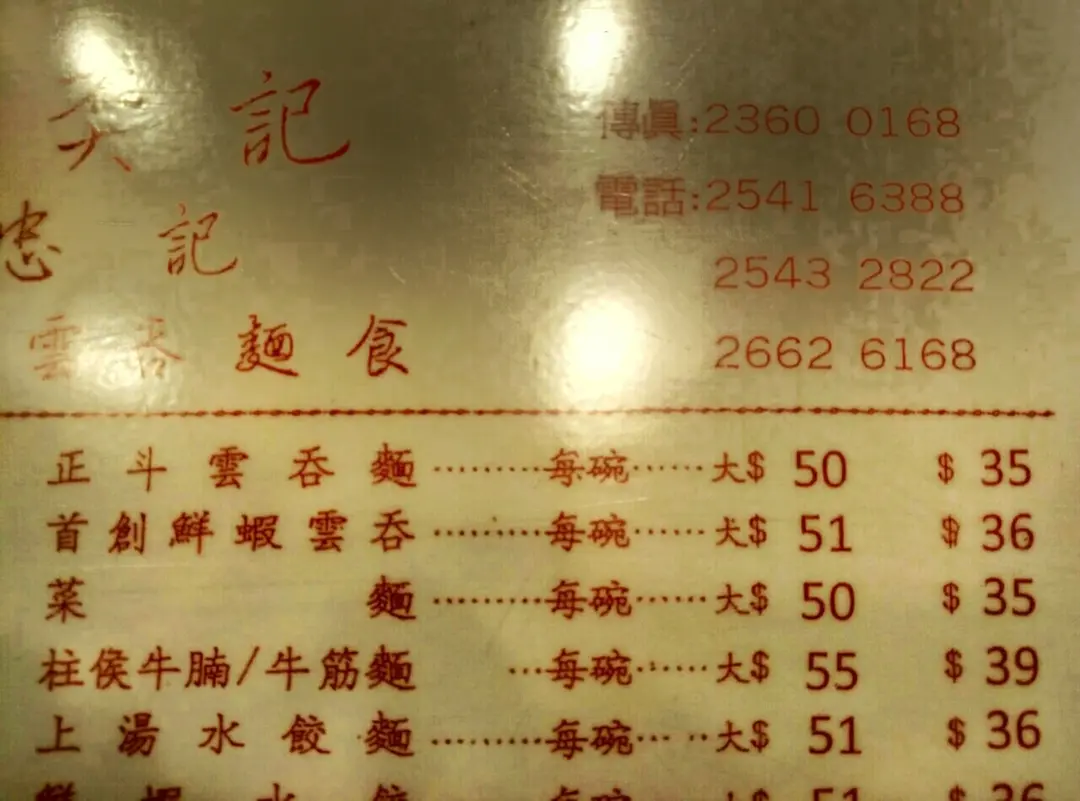 記
傳眞:2360 0168
電話:2541 6388
忠記
2543 2822
雲吞麵食
2662 6168
正斗雲吞麵………每碗……大$ 50 $ 35
首創鮮蝦雲吞………每碗……大$ 51 $ 36
菜麵………每碗……大$ 50 $ 35
柱侯牛腩/牛筋麵…每碗……大$ 55 $ 39
上湯水餃麵………每碗……大$ 51 $ 36
鮮蝦水餃 每碗 大$ 51 $ 36